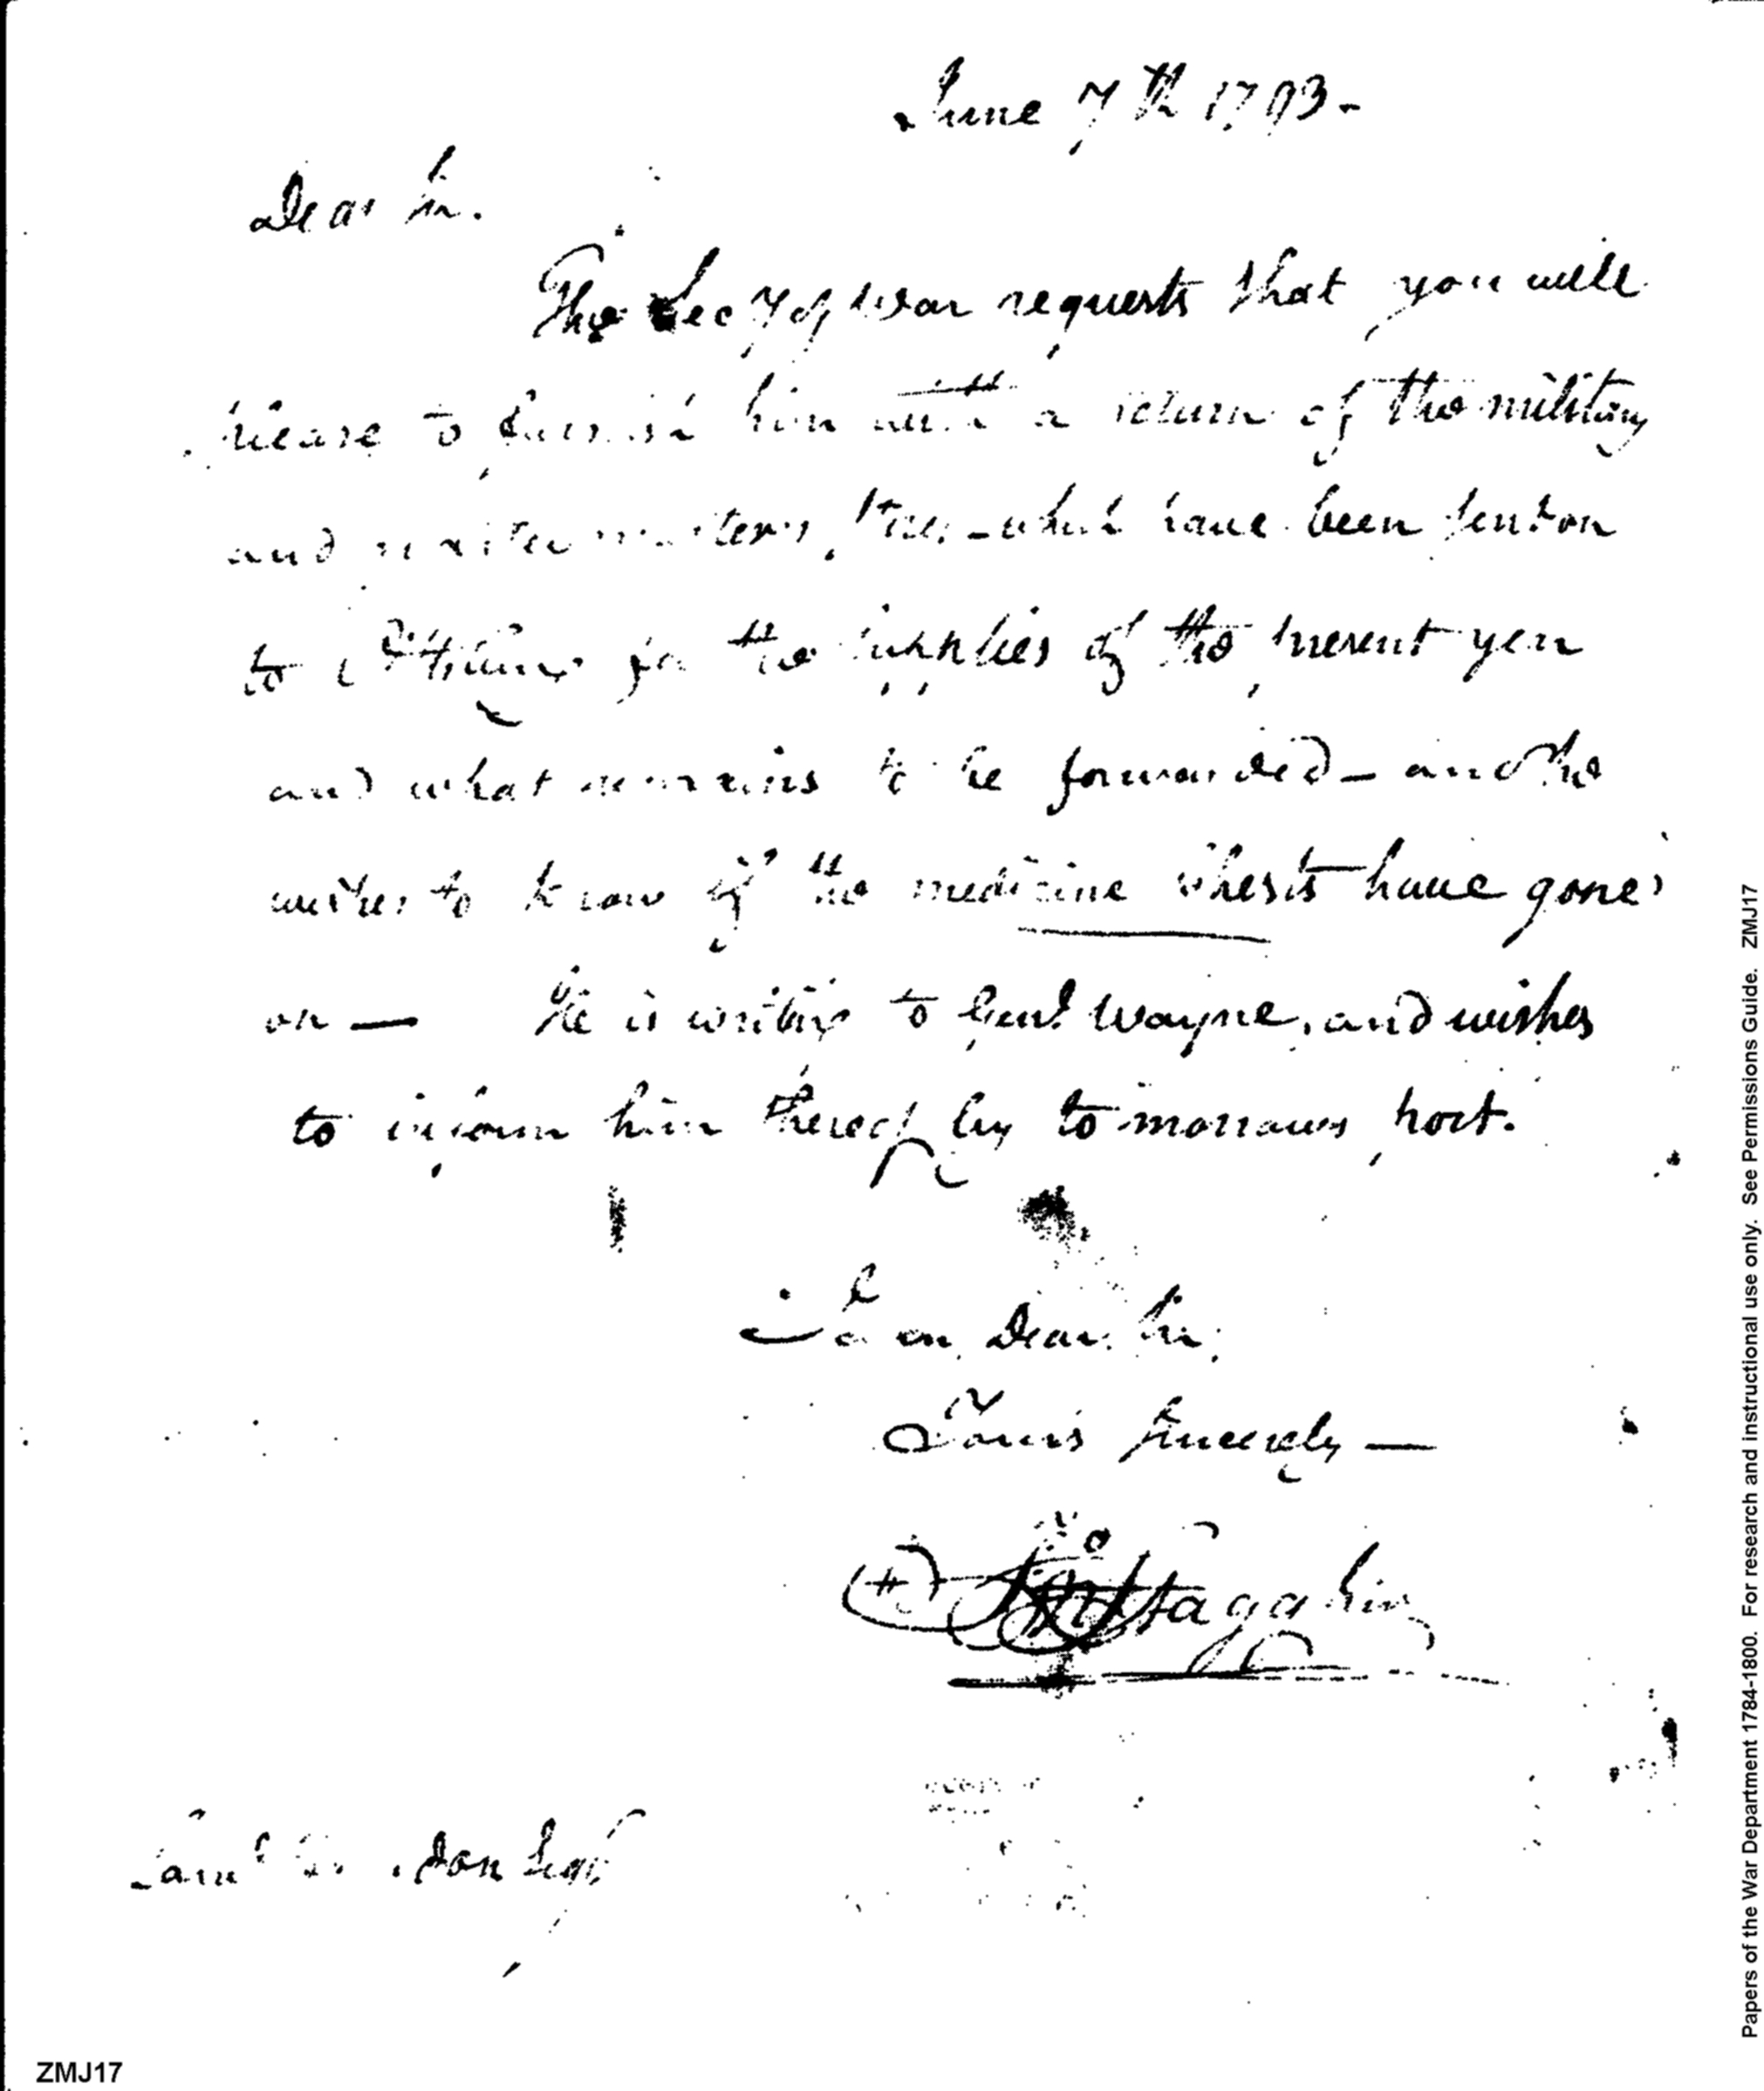 June 7th 1793-
Dear Sir.
The Secy of war requests that you will
please to furnish him with a return of the military
and quarter masters, which have been sent on
to Pittsburg for the supplies of the present year
and what remains to be forwarded - and he
wishes to know if the medicine chests have gone
on - He is writing to Genl Wayne, and wishes
to inform him thereof by to morrows post.
I am Dear Sir,
Yours sincerely -
Stagg
Saml
ZMJ17
Papers of the War Department 1784-1800. For research and instructional use only. See Permissions Guide. ZMJ17